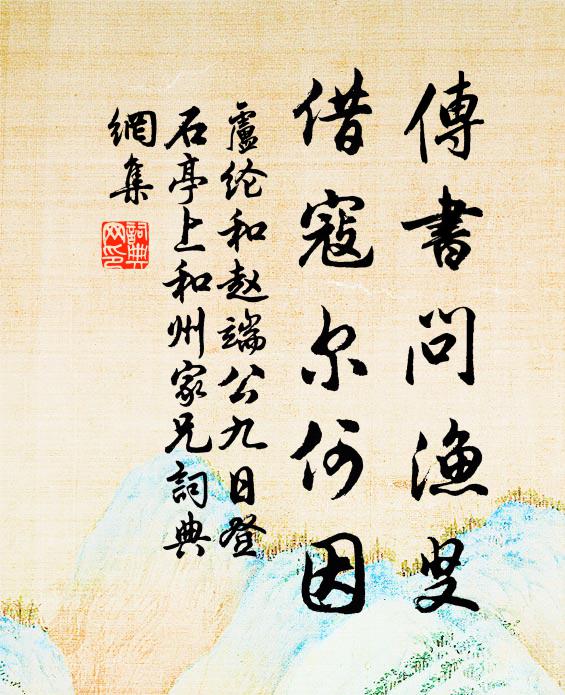 傳書問漁叟
借寇尔何因
盧纶和赵端公九日登
石亭上和州家兄詞典
網集
詞典网印